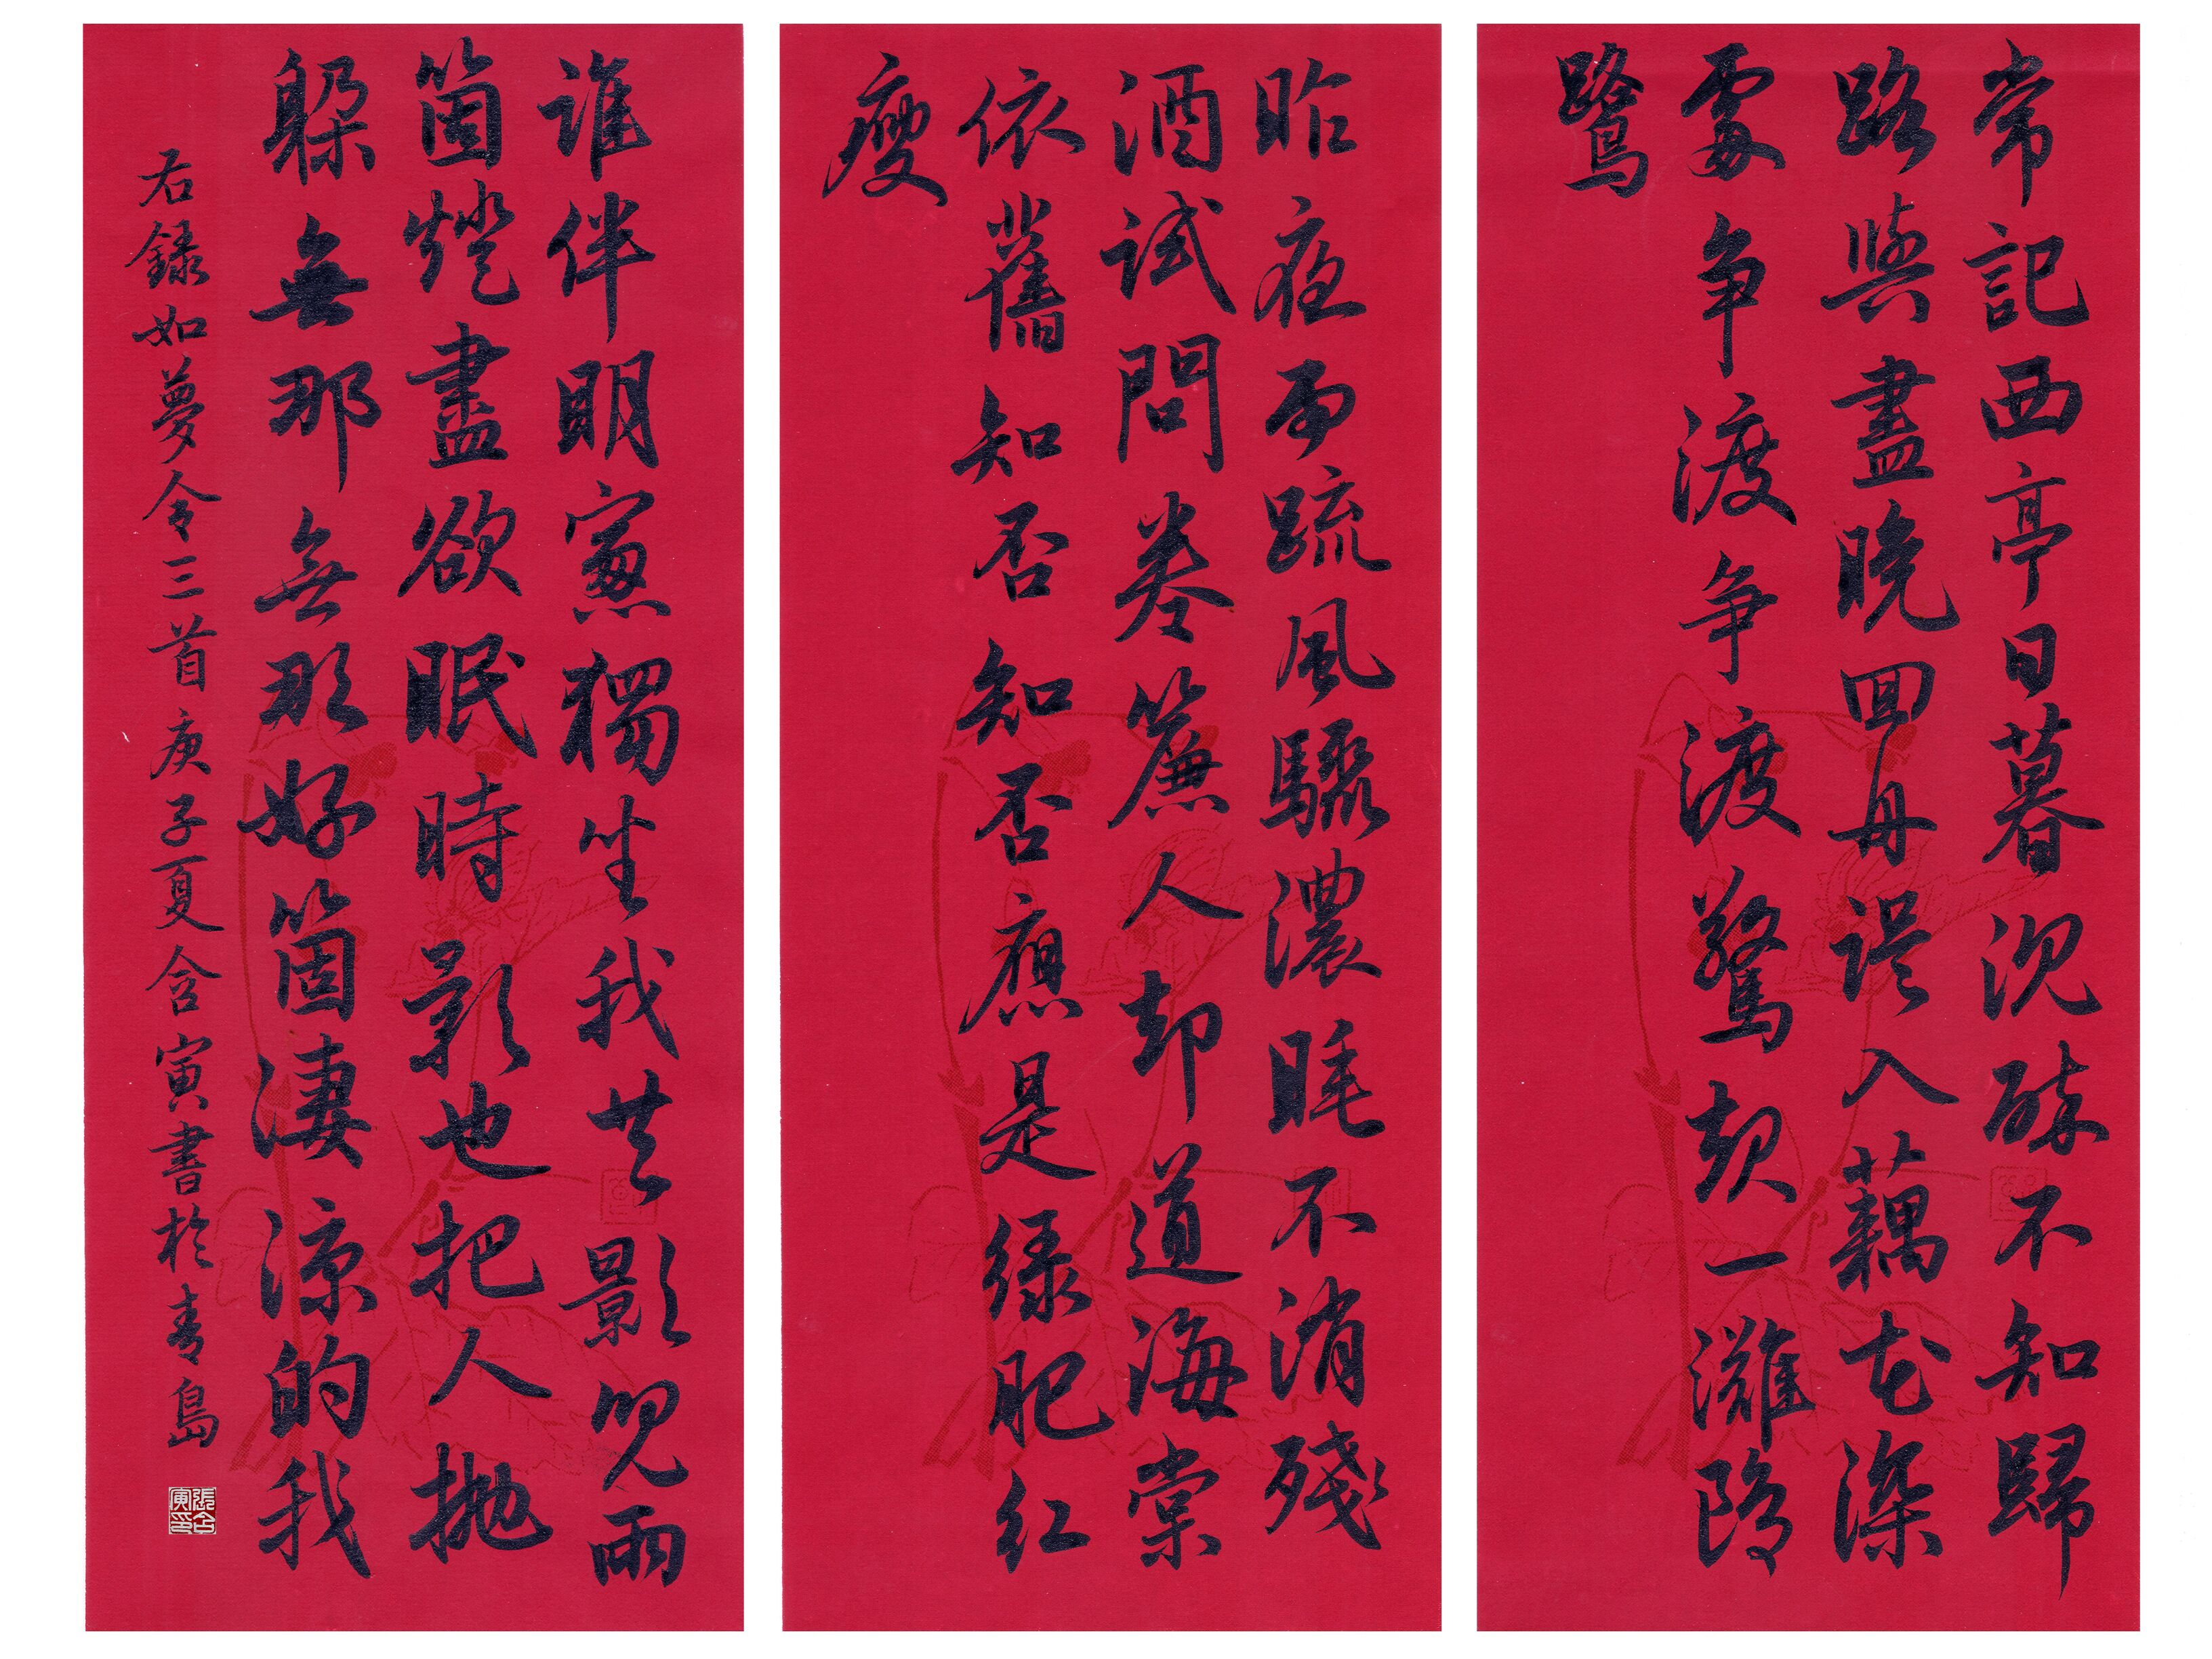 常記西亭日暮沈醉不知歸
路興盡晚回舟誤入藕花深
處争渡争渡驚起一灘鷗
鷺
昨夜雨疏風驟濃睡不消殘
酒試問卷簾人却道海棠
依舊知否知否應是緑肥紅
瘦
誰伴明窗獨坐我共影兒兩
箇燈盡欲眠時影也把人抛
躲無那無那好箇淒涼的我
右録如夢令三首庚子夏含寅書於青島
張含寅印